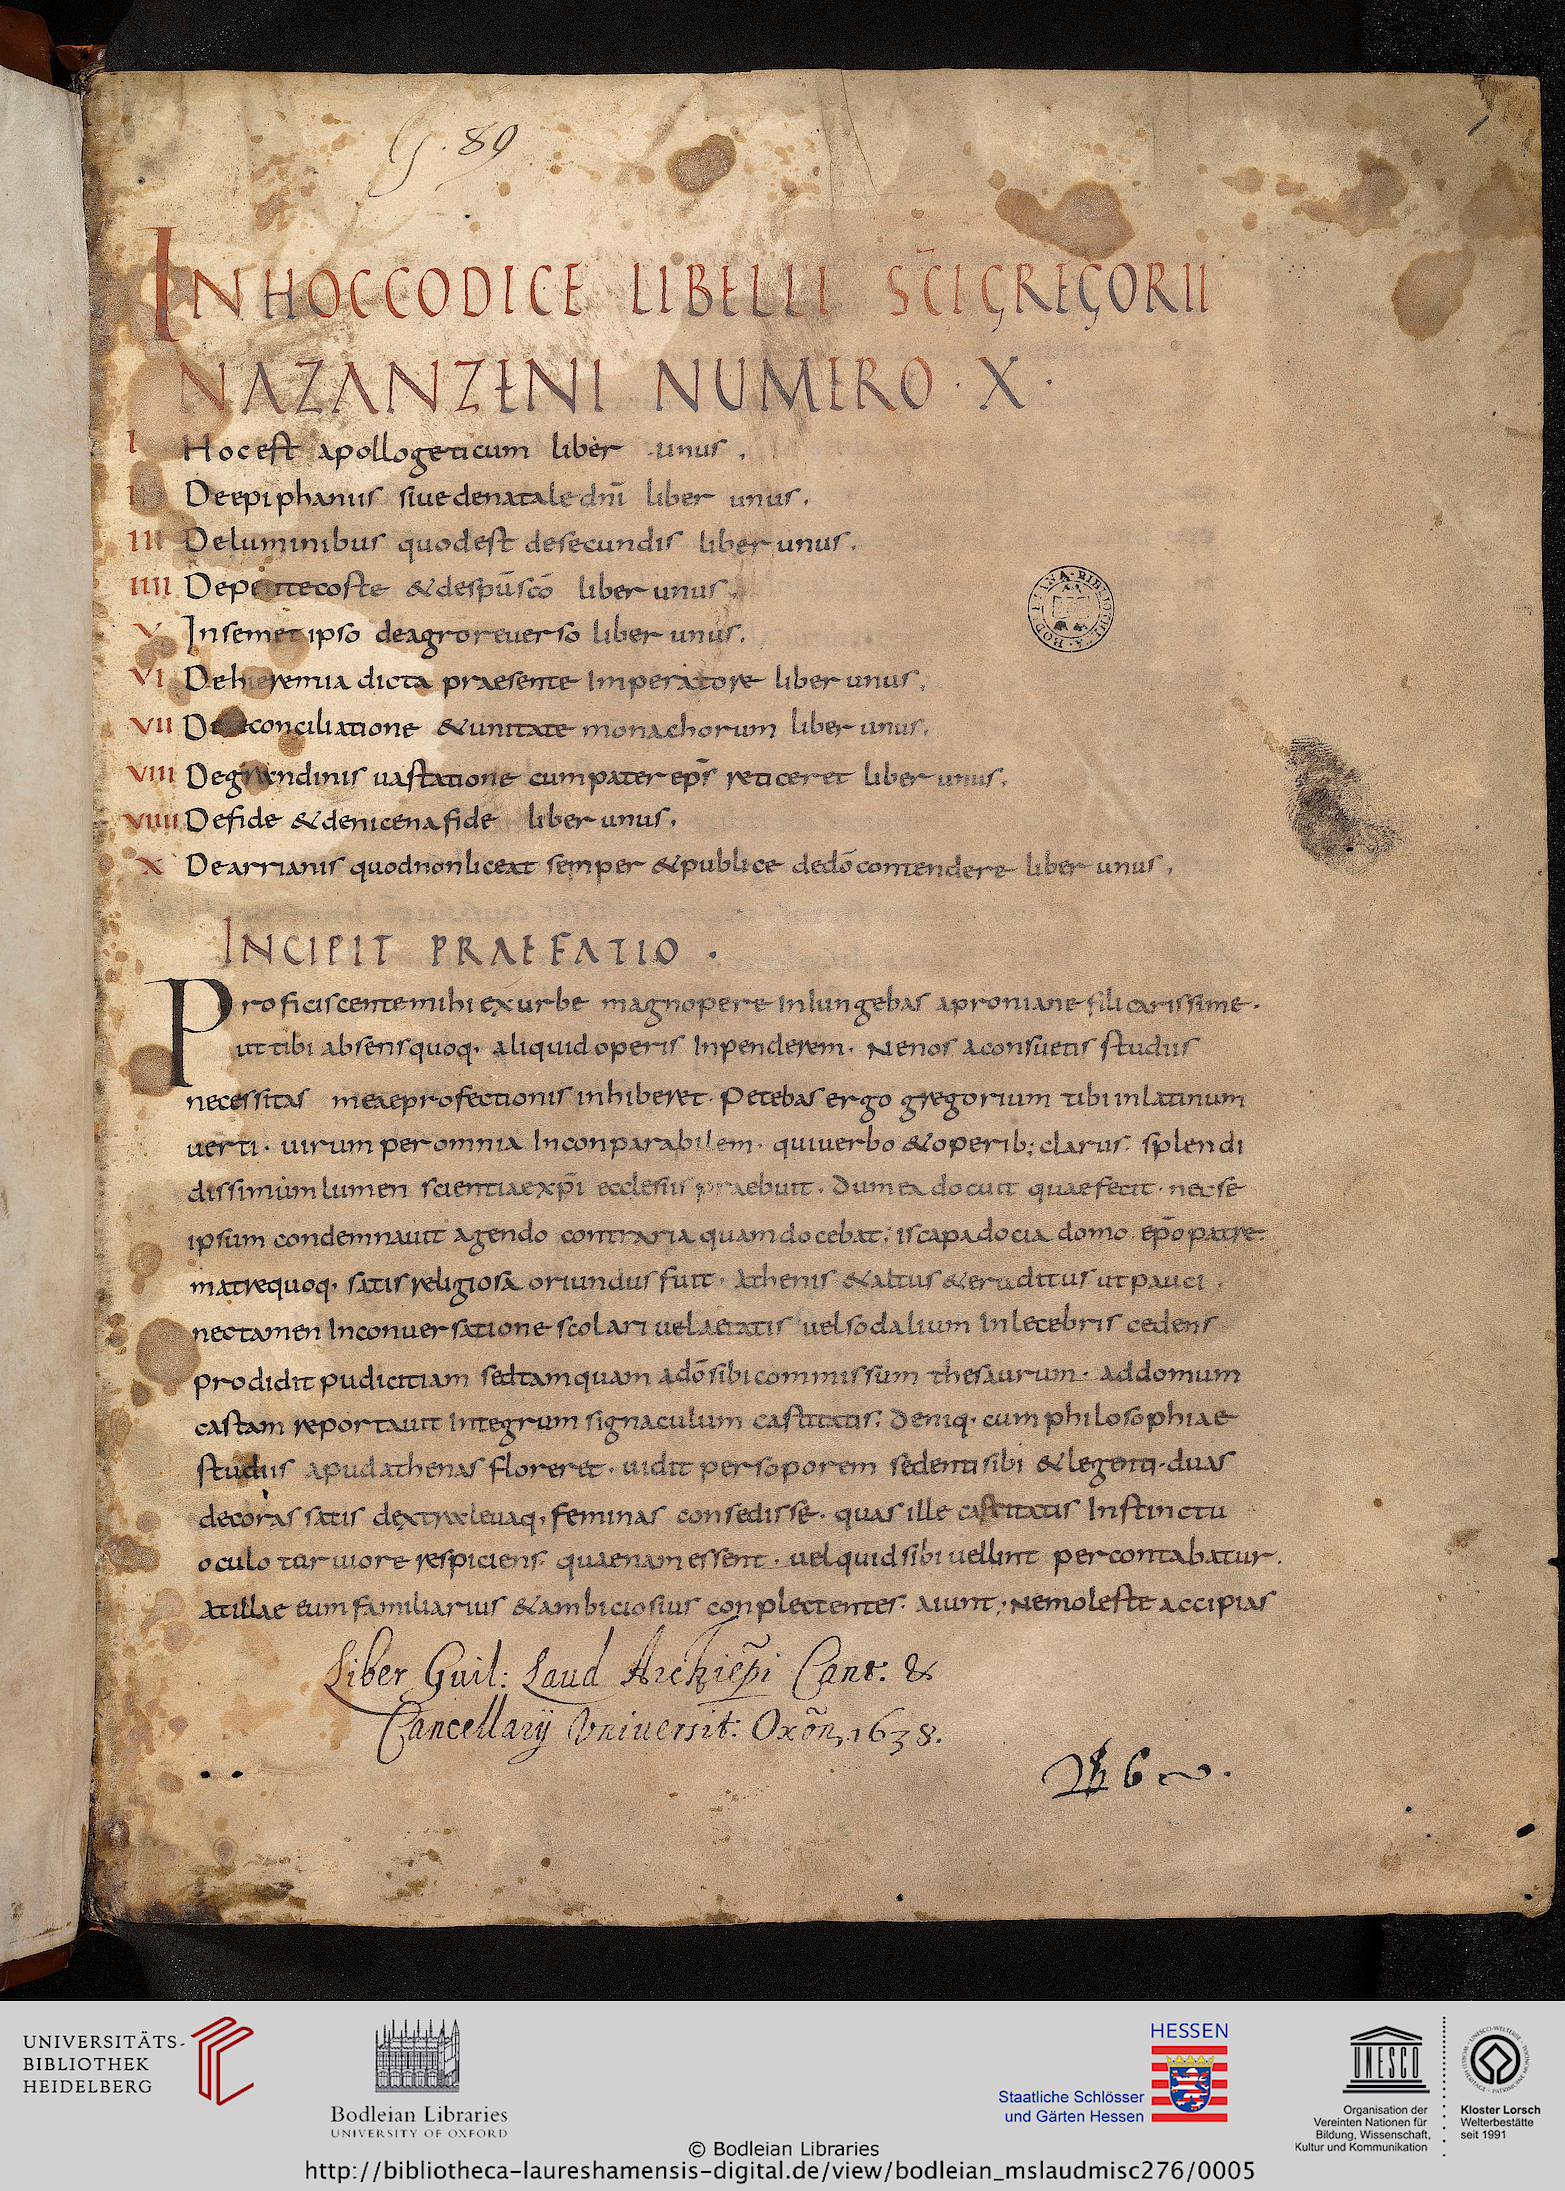 G. 89
INHOCCODICE LIBELLI SC̄I GREGORII
NAZANZENI NUMERO · X ·
I Hocest apollogeticum liber unus.
II Deepiphaniis siue denatale dn̄i liber unus.
III Deluminibus quodest desecundis liber unus.
IIII Depentecoste & despūscō liber unus.
V Insemet ipso deagroreuerso liber unus.
VI Dehieremia dicta praesente Imperatore liber unus.
VII Dereconciliatione & unitate monachorum liber unus.
VIII Degrandinis uastatione cumpater ep̄s reticeret liber unus.
VIIII Defide & denicenafide liber unus.
X Dearrianis quodnonliceat semper & publice dedō contendere liber unus.
INCIPIT PRAEFATIO .
Proficiscentemihi exurbe magnopere Iniungebas aproniane fili carissime.
ut tibi absensquoq· aliquid operis Inpenderem. Nenos aconsuetis studiis
necessitas meaeprofectionis inhiberet. Petebas ergo gregorium tibi inlatinum
uerti. uirum peromnia Inconparabilem. quiuerbo & operib; clarus. splendi
dissimum lumen scientiaexp̄i ecclesiis praebuit. Dumea docuit quaefecit. necse
ipsum condemnauit agendo contraria quamdocebat; iscapadocia domo ep̄o patre
matrequoq· satis religiosa oriundus fuit. Athenis & altus & eruditus utpauci.
nectamen Inconuersatione scolari uelaetatis uelsodalium Inlecebris cedens
prodidit pudicitiam sedtamquam adō sibi commissum thesaurum. addomum
castam reportauit Integrum signaculum castitatis; Deniq· cum philosophiae
studiis apudathenas floreret. uidit persoporem sedenti sibi & legenti. duas
decoras satis dextraleuaq· feminas consedisse. quas ille castitatis Instinctu
oculo toruiore respiciens quaenam essent. uelquid sibi uellint percontabatur.
Atillae eum familiarius & ambiciosius conplectentes. aiunt; Nemoleste accipias
Liber Guil: Laud Archiep̄i Cant. &
Cancellarij Vniuersit: Oxōn, 1638.
BODLEIANA BIBLIOTHECA
UNIVERSITÄTS-
BIBLIOTHEK
HEIDELBERG
Bodleian Libraries
UNIVERSITY OF OXFORD
Staatliche Schlösser
und Gärten Hessen
HESSEN
UNESCO
Organisation der
Vereinten Nationen für
Bildung, Wissenschaft,
Kultur und Kommunikation
Kloster Lorsch
Welterbestätte
seit 1991
© Bodleian Libraries
http://bibliotheca-laureshamensis-digital.de/view/bodleian_mslaudmisc276/0005